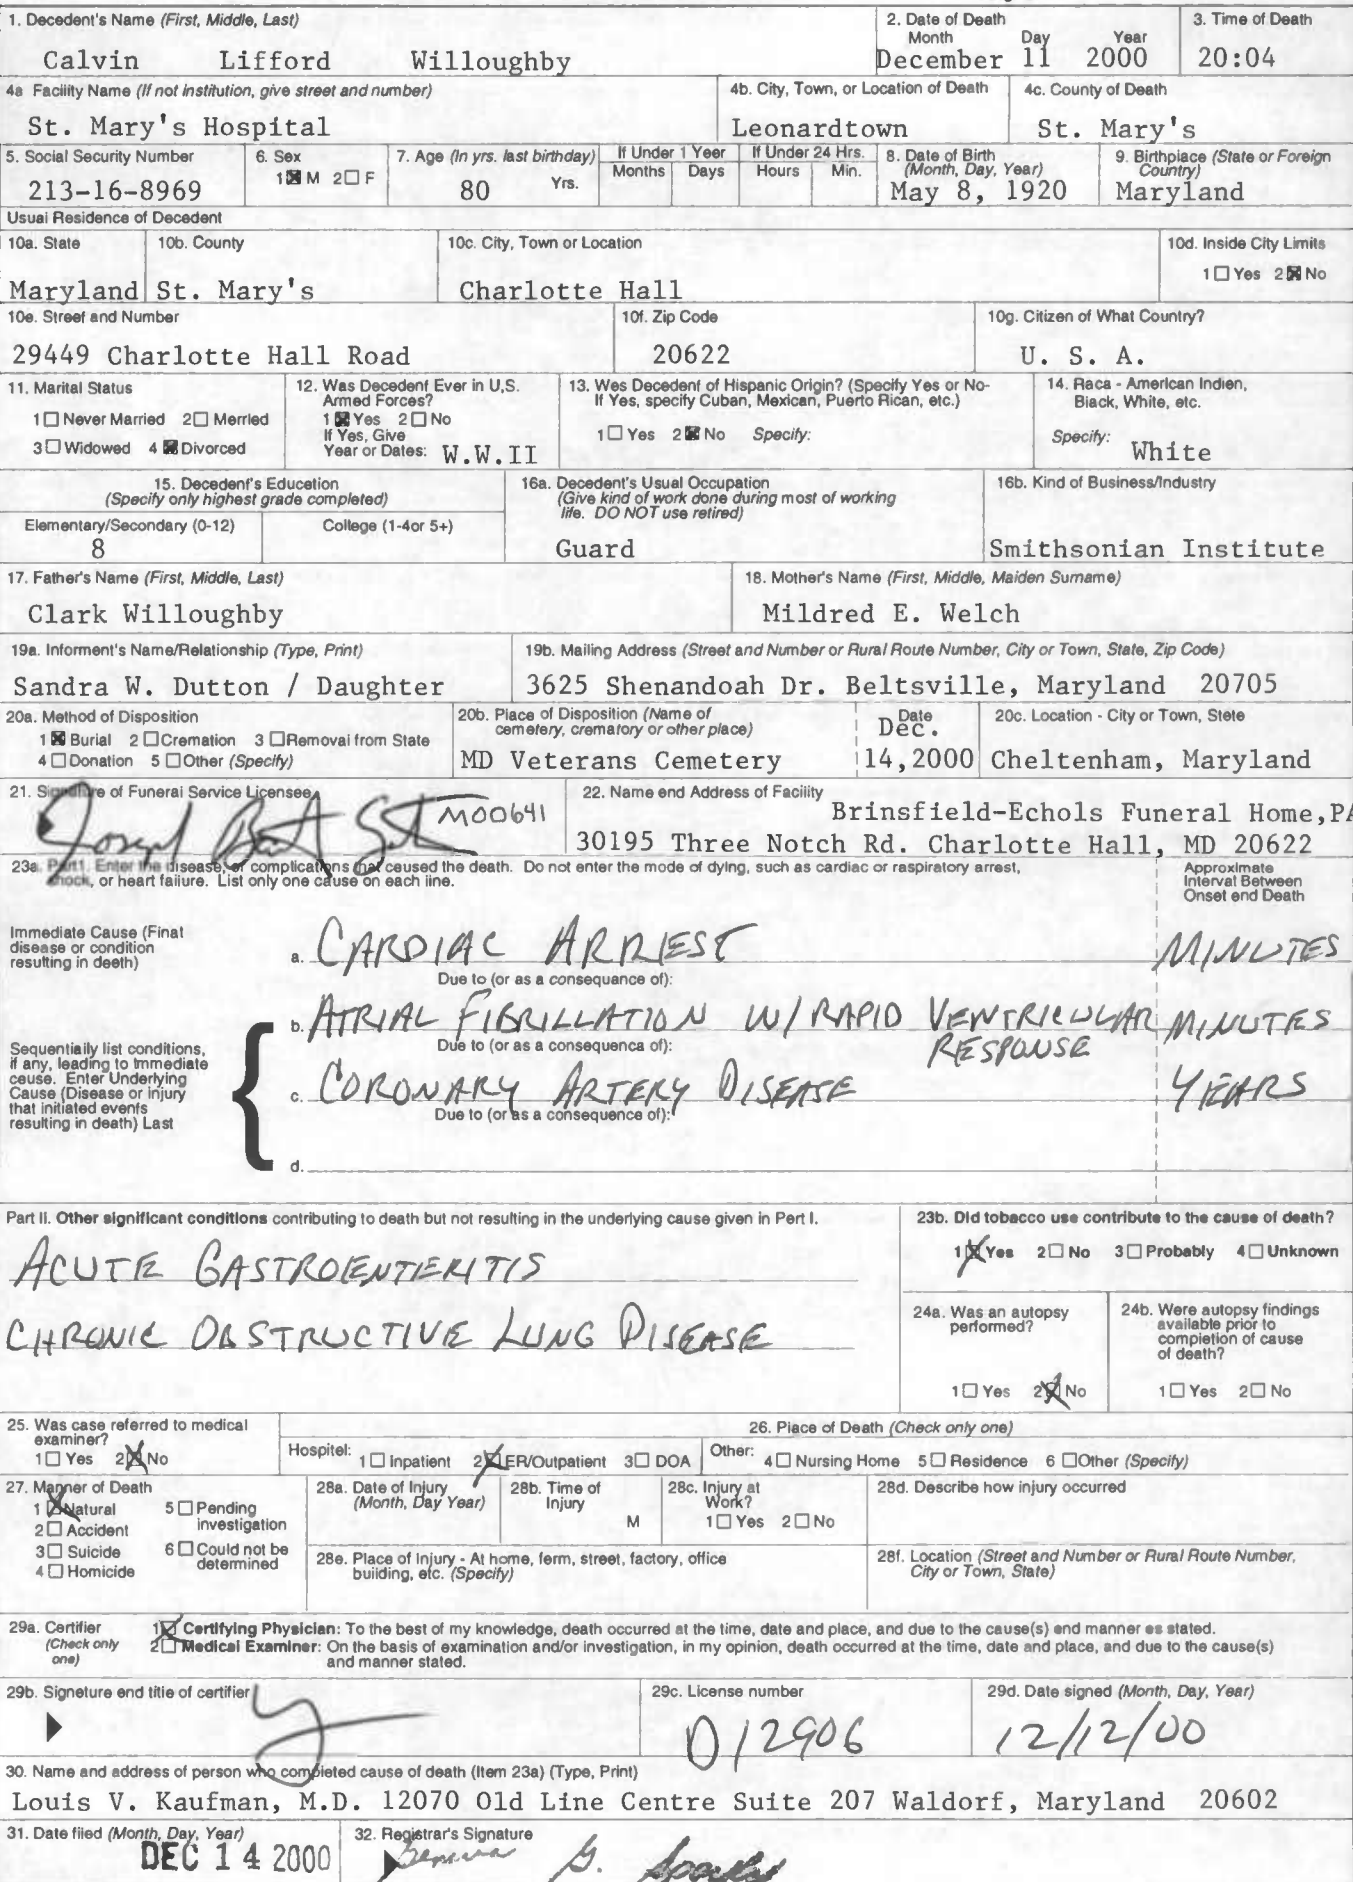 1. Decedent's Name (First, Middle, Last)
Calvin Lifford Willoughby
2. Date of Death
Month Day Year
December 11 2000
3. Time of Death
20:04
4a Facility Name (If not institution, give street and number)
St. Mary's Hospital
4b. City, Town, or Location of Death
Leonardtown
4c. County of Death
St. Mary's
5. Social Security Number
213-16-8969
6. Sex
1☒ M 2☐ F
7. Age (In yrs. last birthday)
80 Yrs.
If Under 1 Year
Months Days
If Under 24 Hrs.
Hours Min.
8. Date of Birth
(Month, Day, Year)
May 8, 1920
9. Birthplace (State or Foreign
Country)
Maryland
Usual Residence of Decedent
10a. State
Maryland
10b. County
St. Mary's
10c. City, Town or Location
Charlotte Hall
10d. Inside City Limits
1☐ Yes 2☒ No
10e. Street and Number
29449 Charlotte Hall Road
10f. Zip Code
20622
10g. Citizen of What Country?
U. S. A.
11. Marital Status
1☐ Never Married 2☐ Merried
3☐ Widowed 4☒ Divorced
12. Was Decedent Ever in U.S.
Armed Forces?
1☒ Yes 2☐ No
If Yes, Give
Year or Dates: W.W.II
13. Wes Decedent of Hispanic Origin? (Specify Yes or No-
If Yes, specify Cuban, Mexican, Puerto Rican, etc.)
1☐ Yes 2☒ No Specify:
14. Raca - American Indien,
Black, White, etc.
Specify: White
15. Decedent's Education
(Specify only highest grade completed)
Elementary/Secondary (0-12)
8
College (1-4or 5+)
16a. Decedent's Usual Occupation
(Give kind of work done during most of working
life. DO NOT use retired)
Guard
16b. Kind of Business/Industry
Smithsonian Institute
17. Father's Name (First, Middle, Last)
Clark Willoughby
18. Mother's Name (First, Middle, Maiden Surname)
Mildred E. Welch
19a. Informent's Name/Relationship (Type, Print)
Sandra W. Dutton / Daughter
19b. Mailing Address (Street and Number or Rural Route Number, City or Town, State, Zip Code)
3625 Shenandoah Dr. Beltsville, Maryland 20705
20a. Method of Disposition
1☒ Burial 2☐ Cremation 3☐ Removal from State
4☐ Donation 5☐ Other (Specify)
20b. Place of Disposition (Name of
cemetery, crematory or other place)
MD Veterans Cemetery
Date
Dec.
14,2000
20c. Location - City or Town, Stete
Cheltenham, Maryland
21. Signature of Funeral Service Licensee
M00641
22. Name end Address of Facility
Brinsfield-Echols Funeral Home,PA
30195 Three Notch Rd. Charlotte Hall, MD 20622
23a. Part I. Enter the disease, or complications that caused the death. Do not enter the mode of dying, such as cardiac or respiratory arrest,
shock, or heart failure. List only one cause on each line.
Approximate
Interval Between
Onset end Death
Immediate Cause (Final
disease or condition
resulting in deeth)
a. CARDIAC ARREST MINUTES
Due to (or as a consequance of):
b. ATRIAL FIBRILLATION W/ RAPID VENTRICULAR RESPONSE MINUTES
Due to (or as a consequenca of):
c. CORONARY ARTERY DISEASE YEARS
Due to (or as a consequence of):
d.
Sequentially list conditions,
if any, leading to immediate
ceuse. Enter Underlying
Cause (Disease or injury
that initiated events
resulting in death) Last
Part II. Other significant conditions contributing to death but not resulting in the underlying cause given in Pert I.
ACUTE GASTROENTERITIS
CHRONIC OBSTRUCTIVE LUNG DISEASE
23b. Did tobacco use contribute to the cause of death?
1☒ Yes 2☐ No 3☐ Probably 4☐ Unknown
24a. Was an autopsy
performed?
1☐ Yes 2☒ No
24b. Were autopsy findings
available prior to
completion of cause
of death?
1☐ Yes 2☐ No
25. Was case referred to medical
examiner?
1☐ Yes 2☒ No
26. Place of Death (Check only one)
Hospitel: 1☐ Inpatient 2☒ ER/Outpatient 3☐ DOA
Other: 4☐ Nursing Home 5☐ Residence 6☐ Other (Specify)
27. Manner of Death
1☒ Natural
2☐ Accident
3☐ Suicide
4☐ Homicide
5☐ Pending
investigation
6☐ Could not be
determined
28a. Date of Injury
(Month, Day Year)
28b. Time of
Injury
M
28c. Injury at
Work?
1☐ Yes 2☐ No
28d. Describe how injury occurred
28e. Place of Injury - At home, ferm, street, factory, office
building, etc. (Specify)
28f. Location (Street and Number or Rural Route Number,
City or Town, State)
29a. Certifier
(Check only
one)
1☒ Certifying Physician: To the best of my knowledge, death occurred at the time, date and place, and due to the cause(s) end manner es stated.
2☐ Medical Examiner: On the basis of examination and/or investigation, in my opinion, death occurred at the time, date and place, and due to the cause(s)
and manner stated.
29b. Signeture end title of certifier
29c. License number
D12906
29d. Date signed (Month, Day, Year)
12/12/00
30. Name and address of person who completed cause of death (Item 23a) (Type, Print)
Louis V. Kaufman, M.D. 12070 Old Line Centre Suite 207 Waldorf, Maryland 20602
31. Date filed (Month, Day, Year)
DEC 14 2000
32. Registrar's Signature
G.